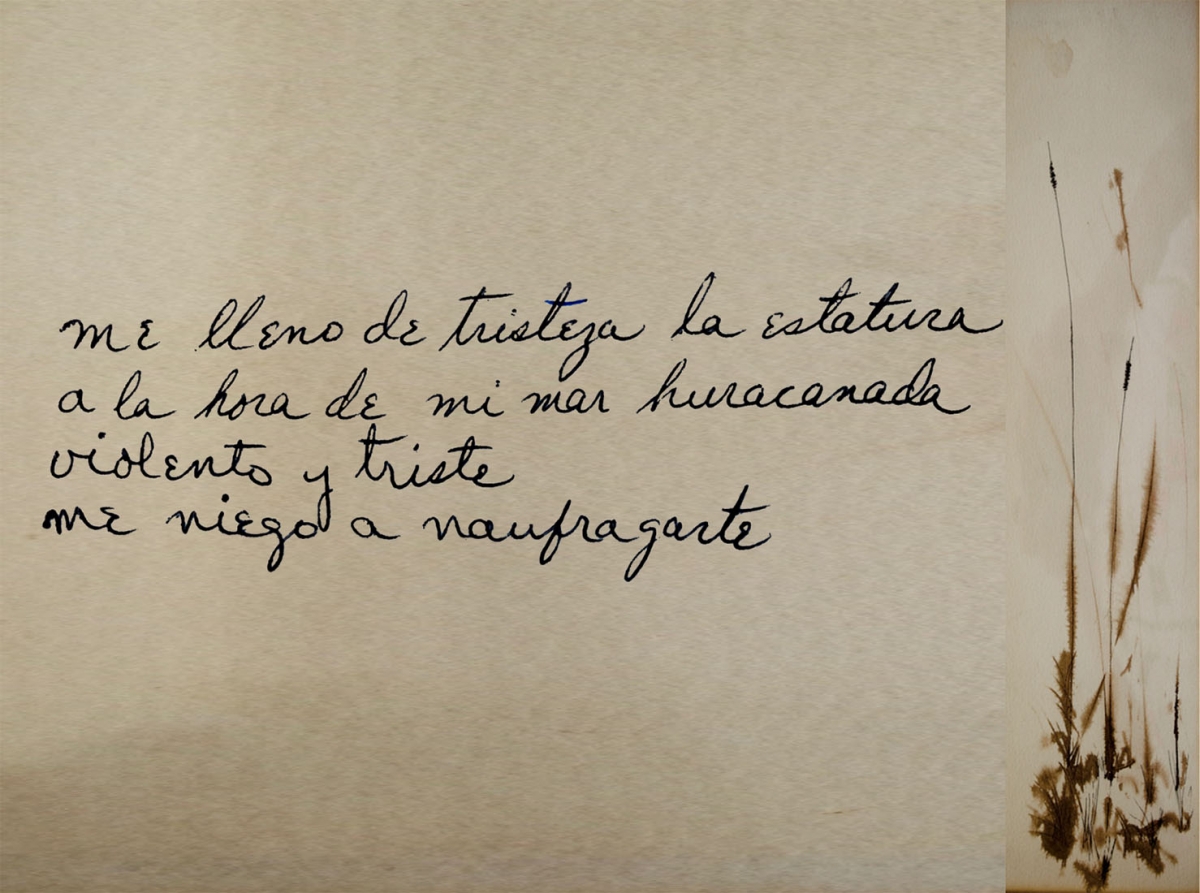 me lleno de tristeza la estatura
a la hora de mi mar huracanada
violento y triste
me niego a naufragarte